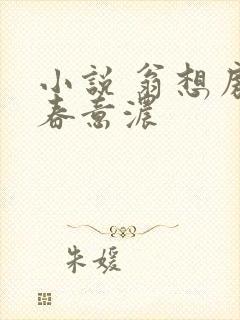 小説 翁想
春意濃
朱媛